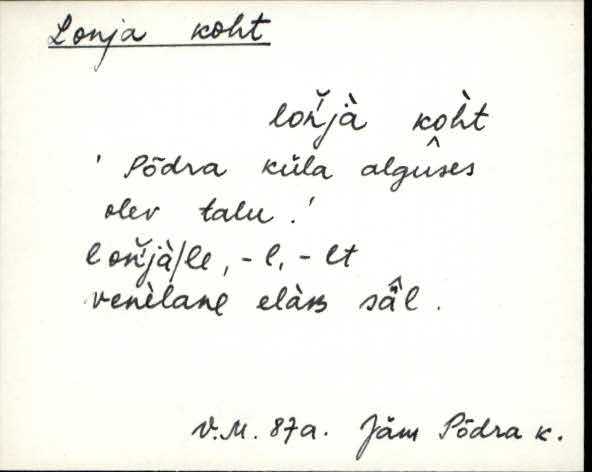 Lonja koht
loň̀jà kòht
' Põdra küla alguses
olev talu.'
loňjà/le, -l, -lt
venèlane elàm sä̂l.
V.M. 87a. Jäm Põdra k.